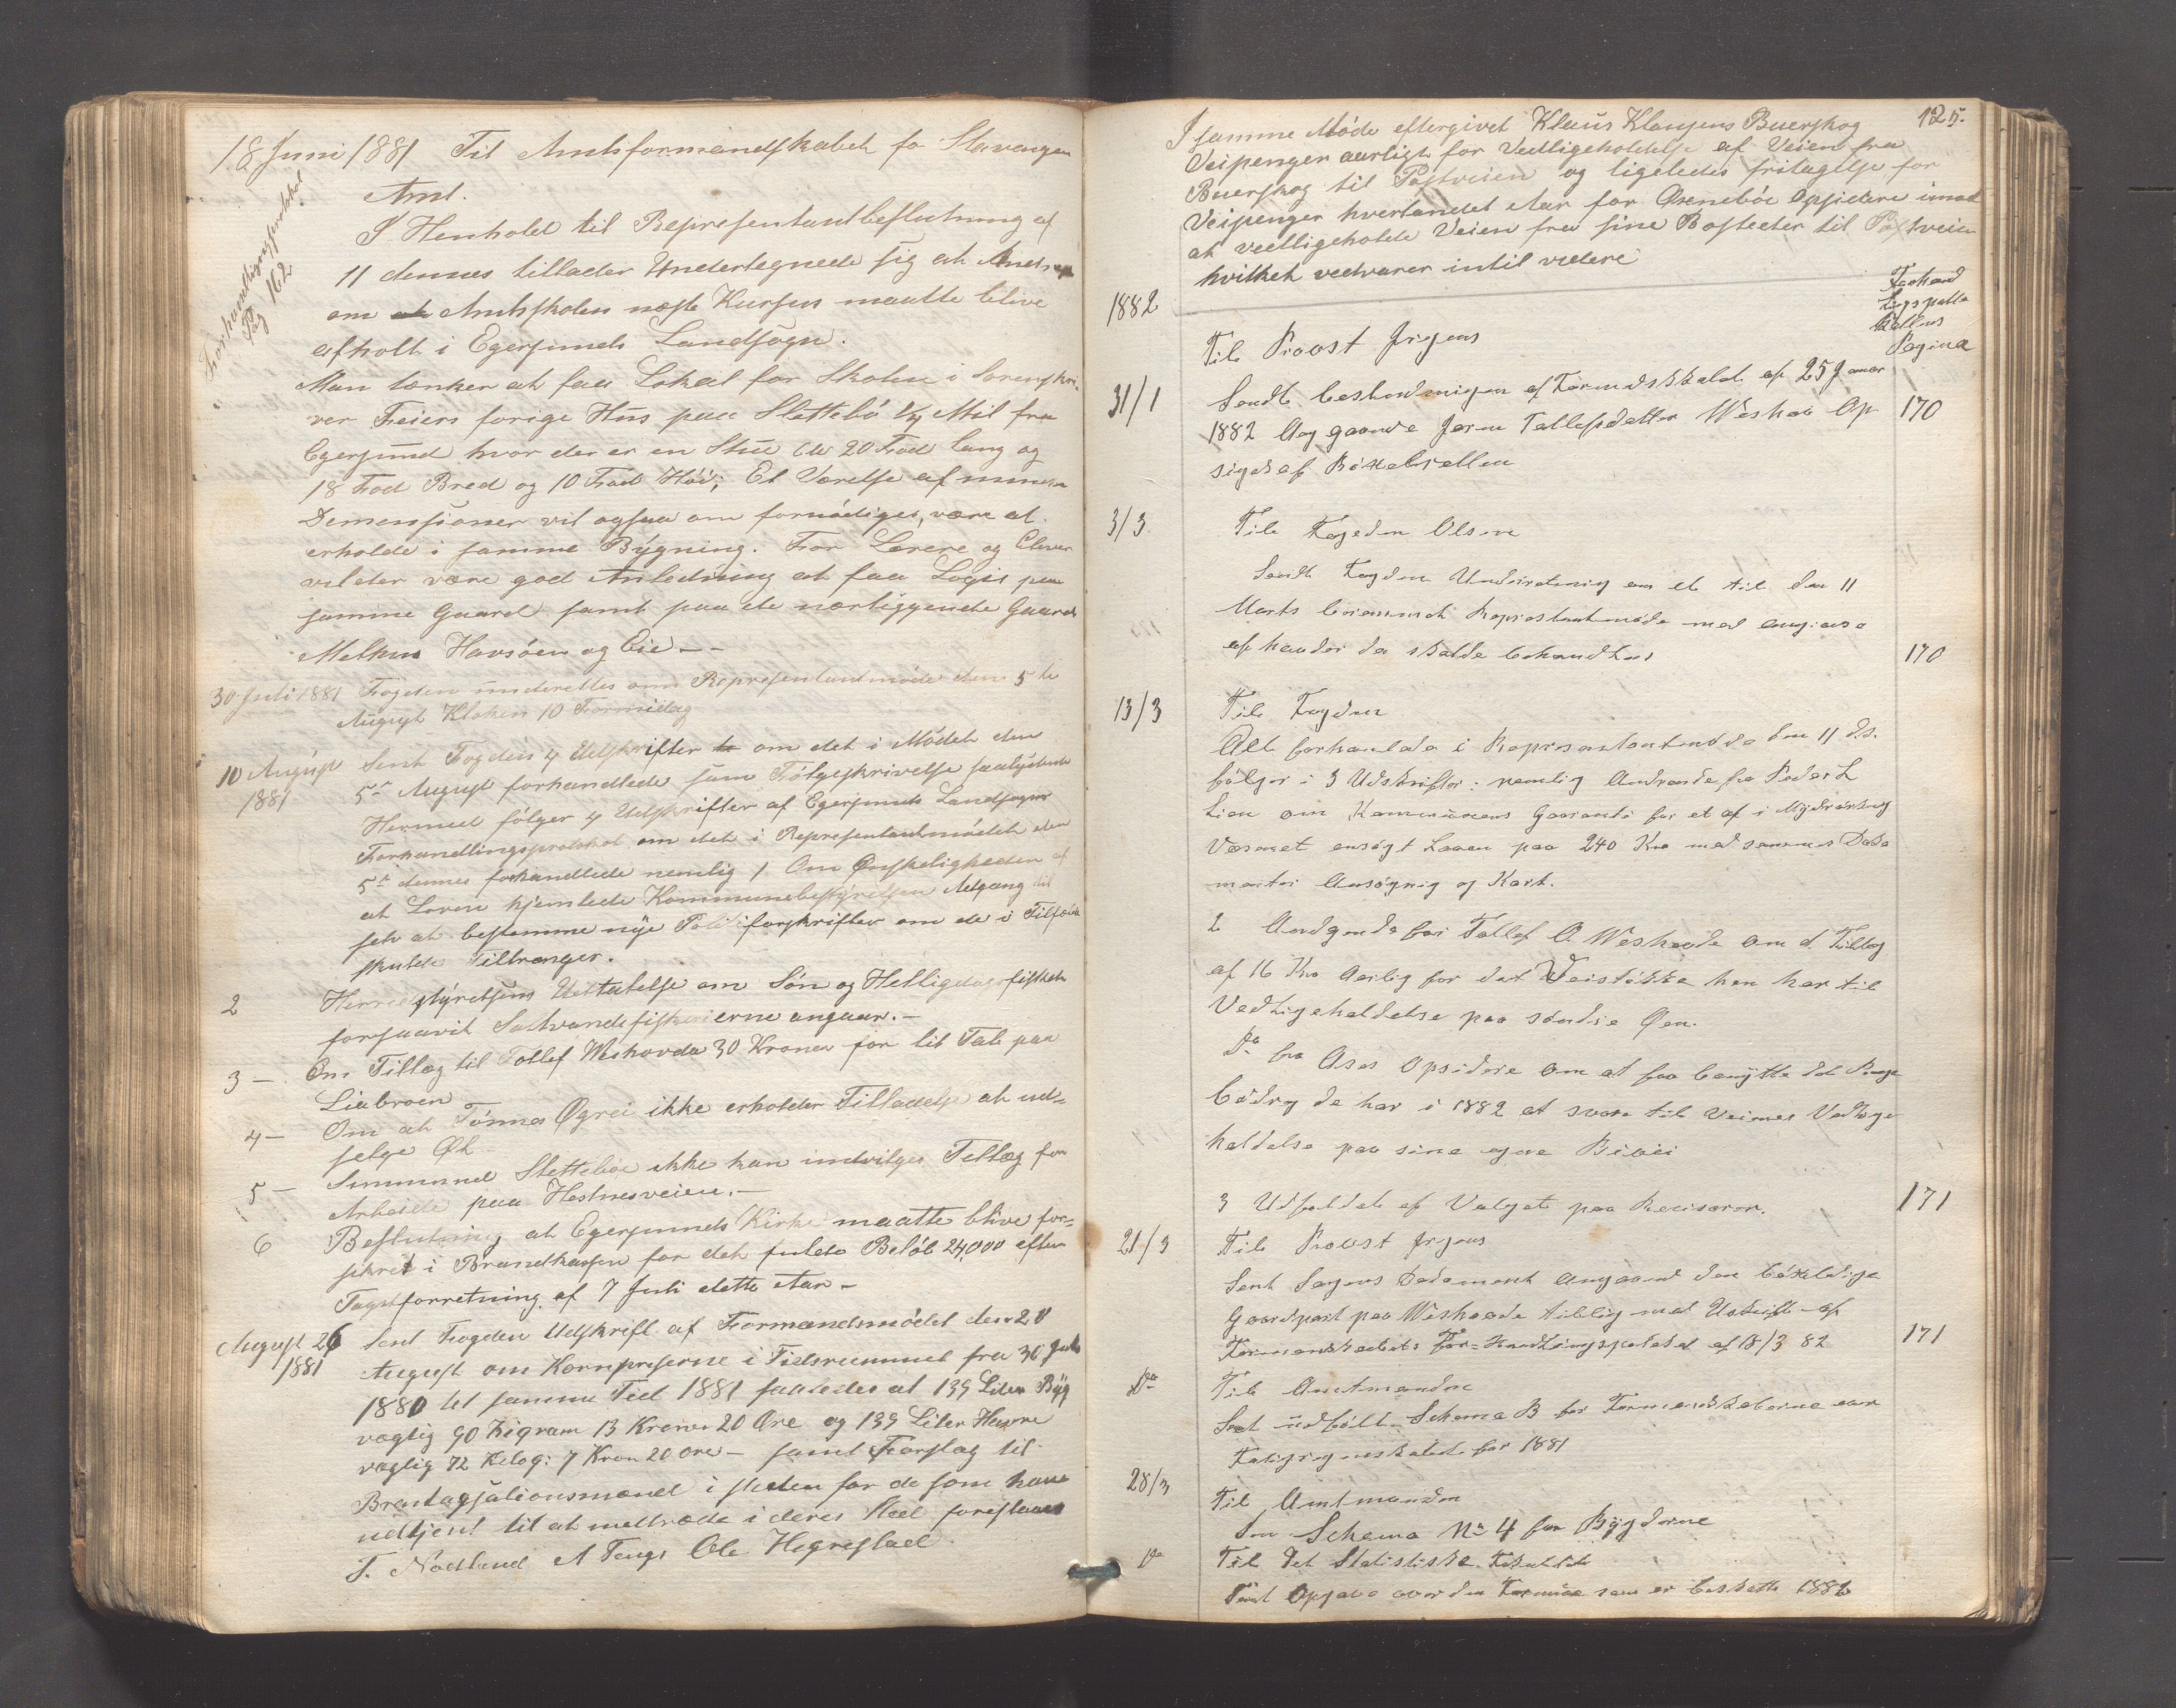 18 Juni 1881 Til Amtsformandskabet for Stavanger
Amt.
Forhandlingsprotokol
Pag 162
I Henhold til Repræsentantbeslutning af
11 dennes tillader Undertegnede sig at
om at Amtskolens næste Kursus maatte blive
afholt i Egersunds Landsogn.
Man tænker at faa Lokal for Skolen i Sorenskri-
ver Feiers forige Hus paa Slettebö 1/4 Mil fra
Egersund hvor der er en Stue 20 Fod lang og
18 Fod Bred og 10 Fod Höi; Et Værelse af mindre
Demensioner vil ogsaa om fornödiges, være at
erholde i samme Bygning. For Lærere og Elever
vil der være god Anledning at faa Logis paa
samme Gaard samt paa de nærliggende Gaarde
Melhus Havsöen og Eie
30 Juli 1881 Fogden underettes om Repræsentantmöde den 5te
August Kloken 10 Formidag
10 August Sent Fogden 4 Udskrifter om det i Mödet den
1881 5te August forhandlede som Fölgeskrivelse saalydende
Hermed fölger 4 Udskrifter af Egersunds Landsogns
Forhandlingsprotokol om det i Repræsentantmödet den
5te dennes forhandlede nemlig 1 Om Ønskeligheden af
at Loven hjemlede Kommunebestyrelsen Adgang til
selv at bestemme nye Politiforskrifter om de i Tilfælde
skulde Tiltrænges.
2 Herredstyrelsens Udtalelse om Sön og Helligdagsfisket
forsaavit Saltvandsfiskerierne angaar.-
3 - Om Tillæg til Tollef Weshovde 30 Kroner for lit Tab paa
Liabroen
4 - Om at Tönnes Øgrei ikke erholder Tilladelse at ud-
selge Øl
5 - Emmanuel Sletteböe ikke kan indvilges Tillæg for
Arbeide paa Hestnesveien.-
6 Beslutning at Egersunds Kirke maatte blive for-
skret i Brandkassen for det fulde Belöb 24,000 efter
Taxstforretning af 7 Juli dette Aar -
August 26 Sent Fogden Udskrift af Formandsmödet den 20
1881 August om Kornpriserne i Tidsrummet fra 30 Juli
1880 til samme Tid 1881 saaledes at 139 Liter Byg
vægtig 90 Kigram 13 Kroner 20 Øre og 139 Liter Havre
vægtig 72 Kilog: 7 Kron 20 Ore - samt Forslag til
i steden for de som have
udtjent til at medtræde i deres Sted foreslaaes
T. Nodland A Tengs Ole Hegrestad.
125.
I samme Möde eftergivet Klaus Klausens Buerskog
Veipenger aarligt for Vedligeholdelse af Veien fra
Buerskog til Postveien og ligeledes fritagelse for
Veipenger hvertandet Aar for Ørneböe Opsidere imod
at vedligeholde Veien fra sine Bosteder til Postveien
hvilket vedvarer intil videre
1882
Pagina
Til Provst Jrgens
31/1 Sendt af Formdskabet af 25 Januar
1882 Aaggaaende Tallefsdatter Weshov Op 170
sigelse af
3/3 Til Fogeden Olsen
Sendt Fogden Underretning om et til den 11
Marts Berammet Represtantmöde med angivese
af hvad der da skulde behandles 170
13/3 Til Fogden
Alt forhanlede i Represantantmöde den 11 ds.
fölger i 3 Udskrifter: nemlig Andraade fra Peder L
Lien om Kommunens Garanti for et af i Myrdörknig
Væsenet ansögt Laaen paa 240 Kro med sammes Doku
menter Ansögnig og Kart.
2 Andgende fra Tollef O Weshovde om d. Tillæg
af 16 Kro Aarlig for det Veistökke han har til
Vedligeholdelse paa söndre Øen.
Do fra Ases Opsidere om at faa benytte det Penge
bödrag de har i 1882 at svare til Veienes Vedlige
holdelse paa sine egne Bivei
3 Udfaldet af Valget paa Revisorer. 171
21/3 Til Provst Jrgens
Sent Sagens Dokument angaaend den
Gaardpart paa Weshovde tillig med Udskrift af
Formandskabets For-Handlingsprotokol af 18/3 82 171
Do Til Amtmanden
Sent udfölt Schema B for Formandskaberne over
for 1881
28/3 Til Amtmanden
Sen Schema No 4 for Bygderne
Do Til Det Statistiske
Sent Opgave over den Formue som er beskatte 1882